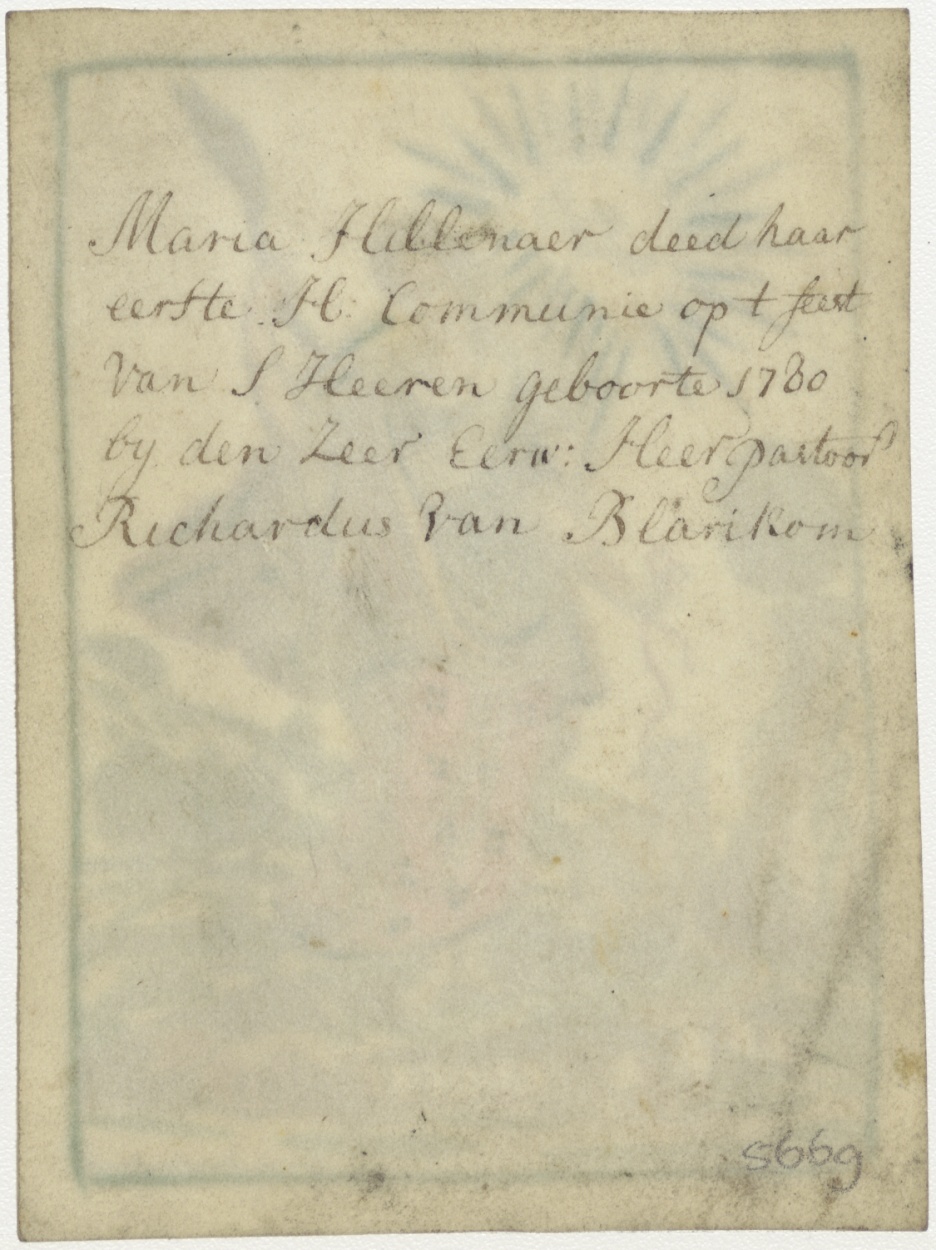 Maria Hillenaer deed haar
eerste H: Communie op t feest
Van S Heeren geboorte 1780
by den Zeer Eerw: Heer pastoor
Richardus Van Blarikom
5669